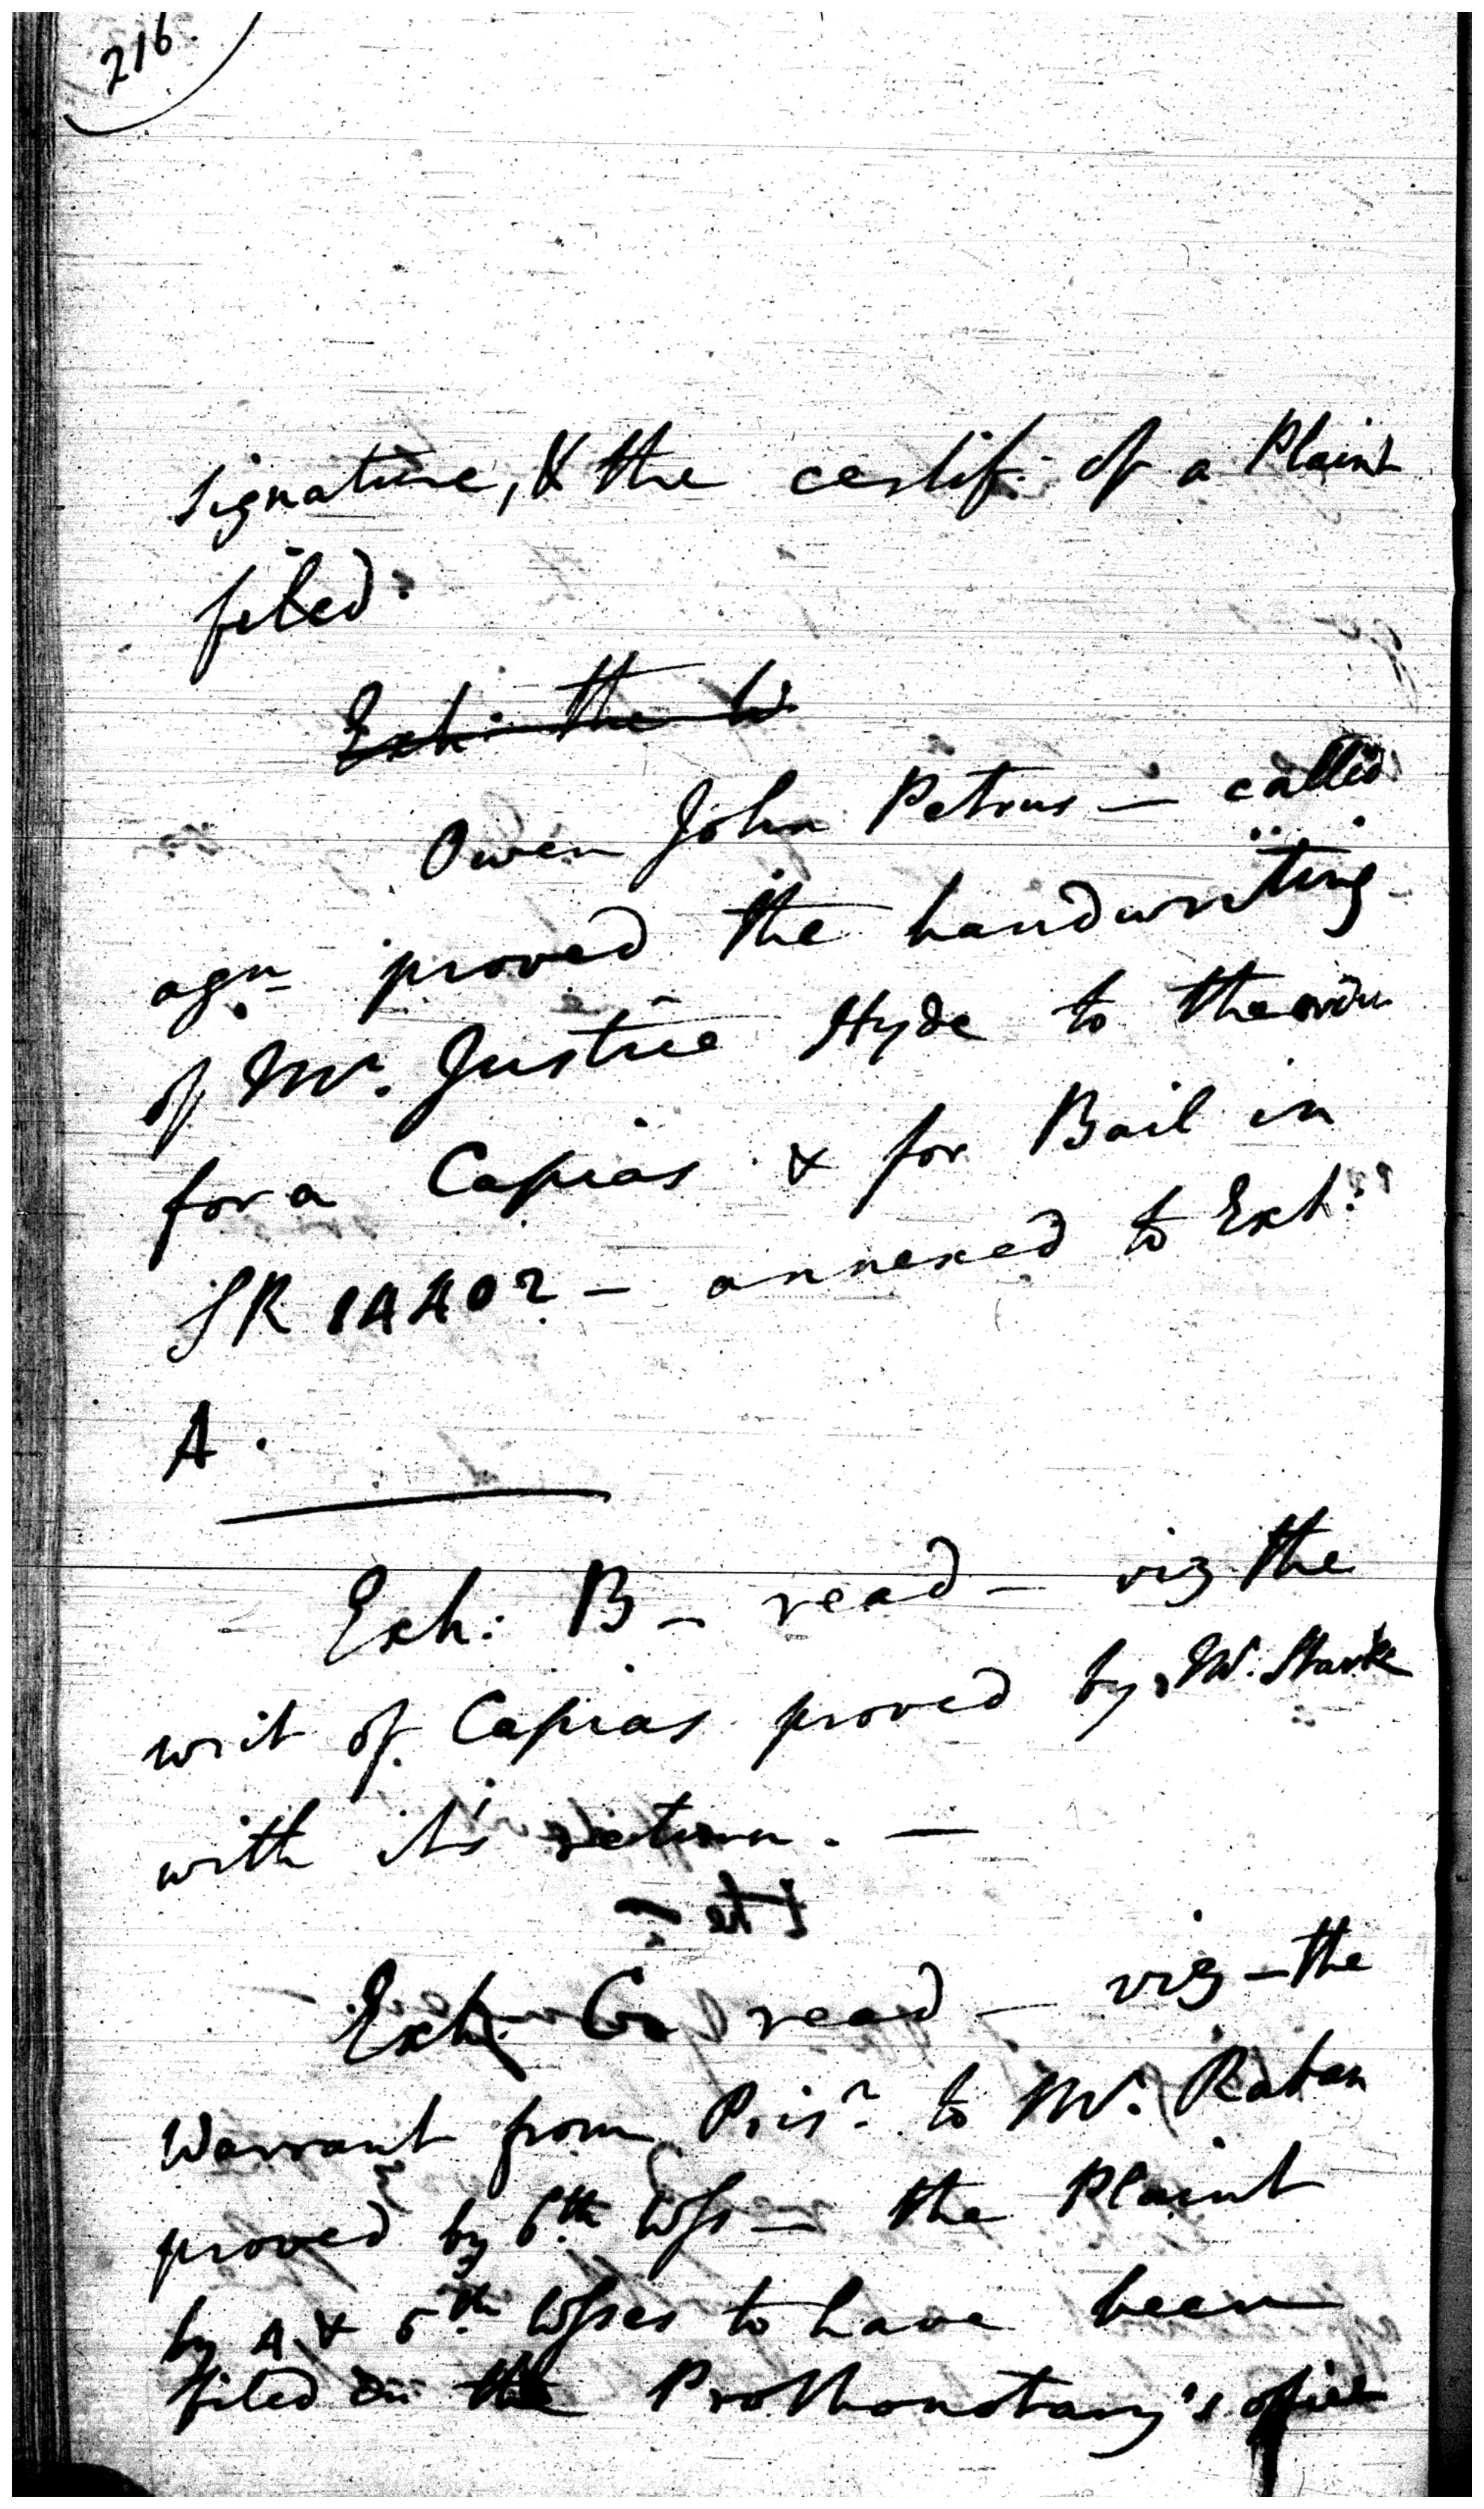 216.
signature, & the certif: of a Plaint
filed.
Exh: the W
Owen John Petrus — called
agn proved the handwriting
of Mr. Justice Hyde to the order
for a Capias & for Bail in
SR 14402 — annexed to Exh:
A.
Exh: B — read — viz the
writ of Capias proved by Mr. Stark
with it's return. —
Exh: C read — viz — the
Warrant from Prisr. to Mr. Raban
proved by 6th. Wss — the Plaint
by 4 & 5th. Wsses to have been
filed in the Prothonotary's office